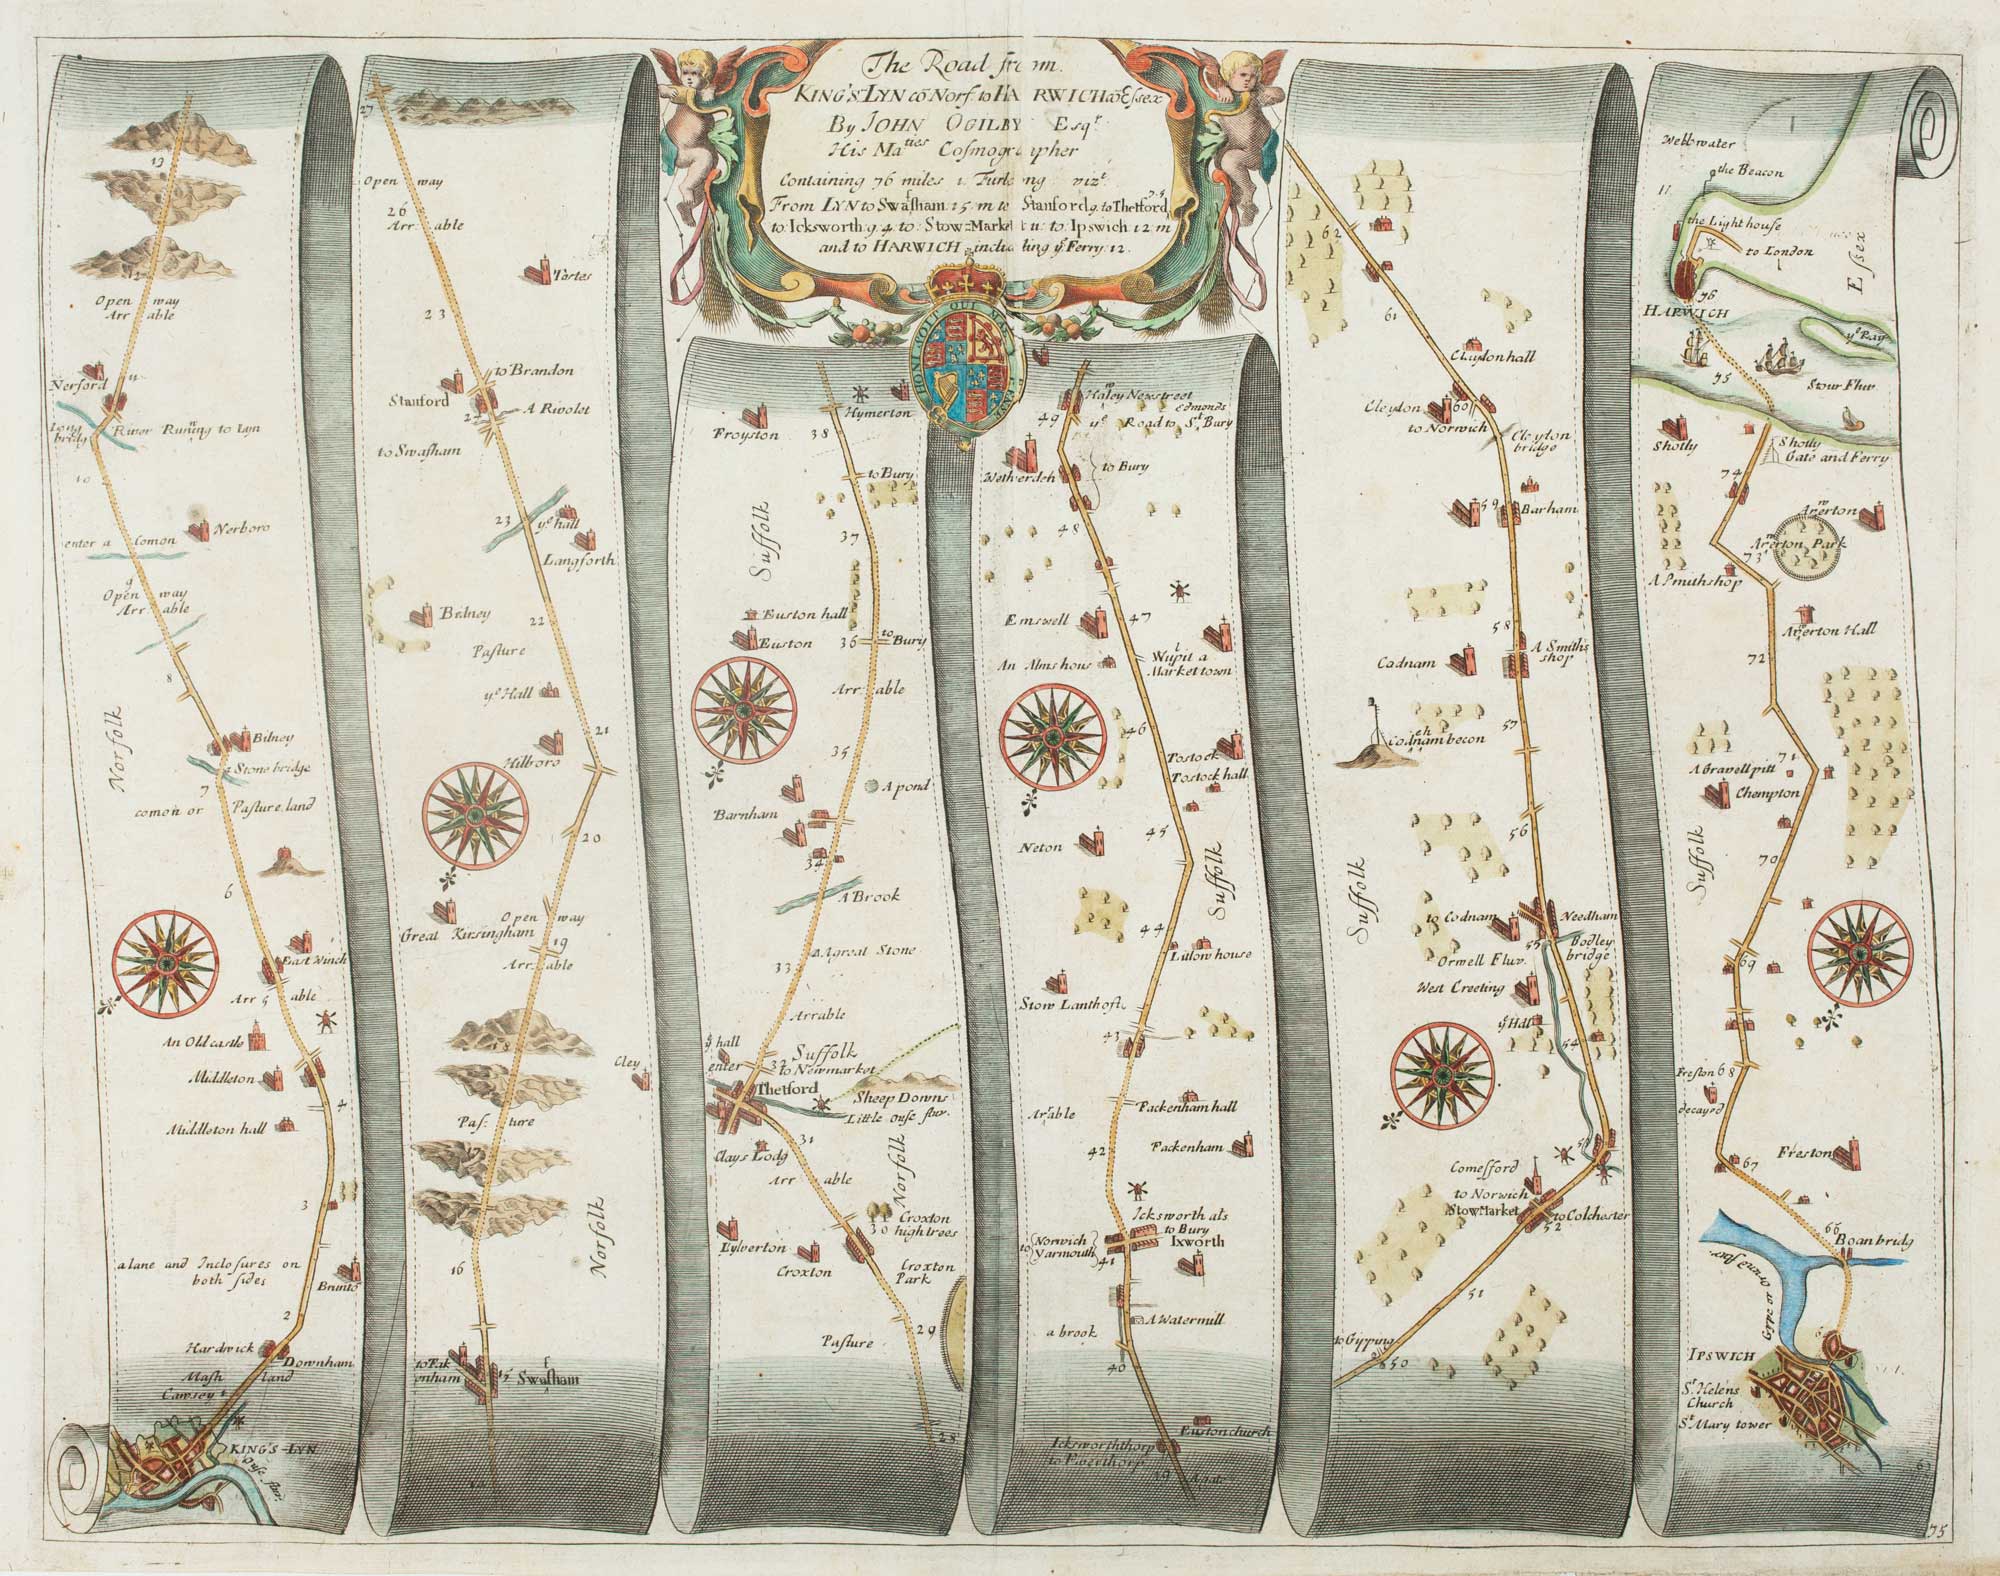 The Road from
KING'S LYN cō Norf. to HARWICH cō Essex
By JOHN OGILBY Esqr.
His Maties Cosmographer
Containing 76 miles 1 Furlong vizt.
From LYN to Swafham 15 m to Stanford 9. to Thetford 7.5
to Icksworth 9 4 to Stow=Market 11 to Ipswich 12 m
and to HARWICH including ye Ferry 12.
HONI SOIT QUI MAL Y PENSE
13
12
Open way
Arrable
Nerford
11
Long bridg
River Runing to Lyn
10
Nerboro
enter a Comon
9
Open way
Arrable
8
Norfolk
Bilney
a Stone bridge
7
comon or Pasture land
6
East Winch
Arr 5 able
An Old castle
Middleton
4
Middleton hall
3
a lane and Inclosures on
both sides
Brunto
2
Hardwick
Downham
Mash land
Cawsey 1
KING'S-LYN
Ouse fluv.
27
Open way
26
Arrable
Tostes
23
to Brandon
Stanford
A Rivolet
24
to Swafham
23
ye hall
Langforth
Bidney
22
Pasture
ye Hall
21
Hilboro
20
Open way
Great Kirsingham
19
Arrable
18
Cley
Pasture
Norfolk
16
to Fak
enham
15
Swafham
Hymerton
Froyston
38
to Bury
Suffolk
37
Euston hall
Euston
36
to Bury
Arrable
35
A pond
Barnham
34
A Brook
A great Stone
33
Arrable
ye hall
Suffolk
enter
32
to Newmarket
Thetford
Sheep Downs
Little ouse fluv.
31
Clays Lodg
Norfolk
Arrable
Croxton
high trees
30
Kylverton
Croxton
Croxton
Park
29
Pasture
28
Haley Newstreet
49
Edmonds
ye Road to St. Bury
Wetherden
to Bury
48
Emswell
47
An Almshous
Wulpit a
Market town
46
Tostock
Tostock hall
45
Neton
Suffolk
44
Litlow house
Stow Lanthoft
43
Packenham hall
Arrable
42
Packenham
Icksworth als
Norwich
to Bury
Yarmouth
Ixworth
41
A Watermill
a brook
40
Euston church
Icksworththorp
to Everthorp
39
62
61
Claydon hall
Cleydon
60
to Norwich
Cleyton
bridge
59
Barham
58
A Smiths
shop
Codnam
57
Codnam becon
56
Suffolk
to Codnam
Needham
55
Bodley
bridge
Orwell Fluv.
West Creeting
ye Hall
54
Comesford
to Norwich
StowMarket
to Colchester
52
51
to Gypping
50
Webbwater
the Beacon
11
the Light house
to London
Essex
76
HARWICH
ye Bay
75
Stour Fluv
Shotly
Shotly
Gate and Ferry
74
Arwerton
Arwerton Park
73
A Smith shop
Arwerton Hall
72
71
A Gravell pitt
Chempton
70
Suffolk
69
68
Freston
decayed
67
Freston
66
Boanbridg
Gyppe or Orwell fluv.
IPSWICH
St. Helens
Church
St. Mary tower
75